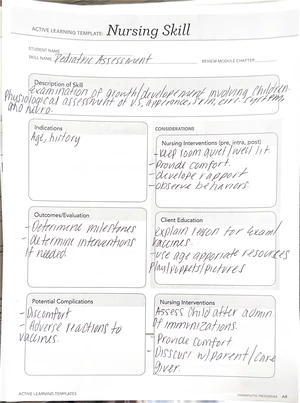 ACTIVE LEARNING TEMPLATE: Nursing Skill
STUDENT NAME
SKILL NAME Pediatric Assessment REVIEW MODULE CHAPTER
Description of Skill
Examination of growth/development involving children.
physiological assessment of VS, apperance, skin, circ. system,
and neuro.
Indications
Age, history
CONSIDERATIONS
Nursing Interventions (pre, intra, post)
-keep room quiet/well lit
-Provide comfort.
-develope rapport
-observe behaviors.
Outcomes/Evaluation
-Determine milestones
-determine interventions
if needed
Client Education
Explain reason for exam/
vaccines.
-use age approriate resources
play/puppets/pictures
Potential Complications
-Discomfort
-Adverse reactions to
vaccines.
Nursing Interventions
Assess child after admin
of immunizations.
Provide comfort
-Disscus w/parent/care
giver.
ACTIVE LEARNING TEMPLATES
THERAPEUTIC PROCEDURE